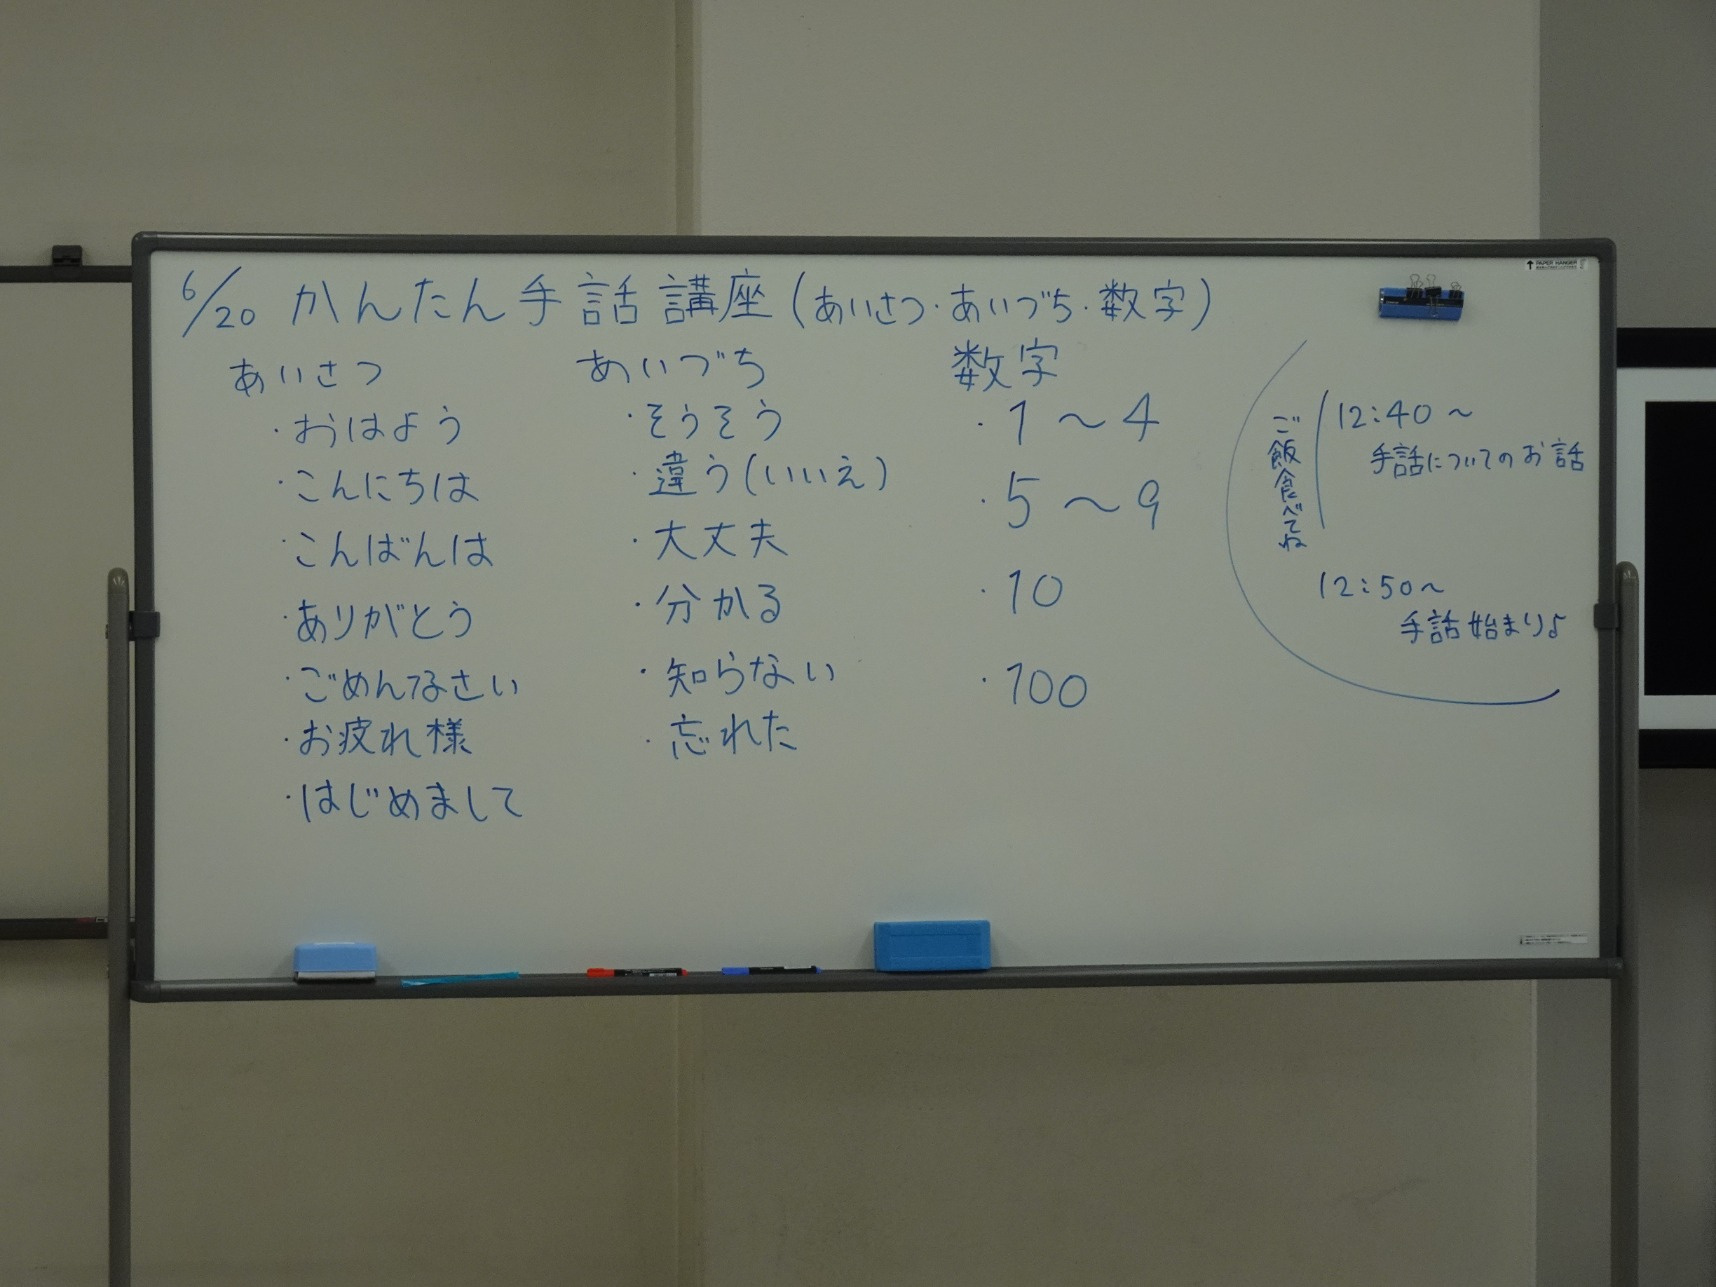 6/20 かんたん手話講座(あいさつ・あいづち・数字)
あいさつ
・おはよう
・こんにちは
・こんばんは
・ありがとう
・ごめんなさい
・お疲れ様
・はじめまして
あいづち
・そうそう
・違う(いいえ)
・大丈夫
・分かる
・知らない
・忘れた
数字
・1〜4
・5〜9
・10
・100
ご飯食べてね
12:40〜
手話についてのお話
12:50〜
手話始まり♪
PAPER HANGER